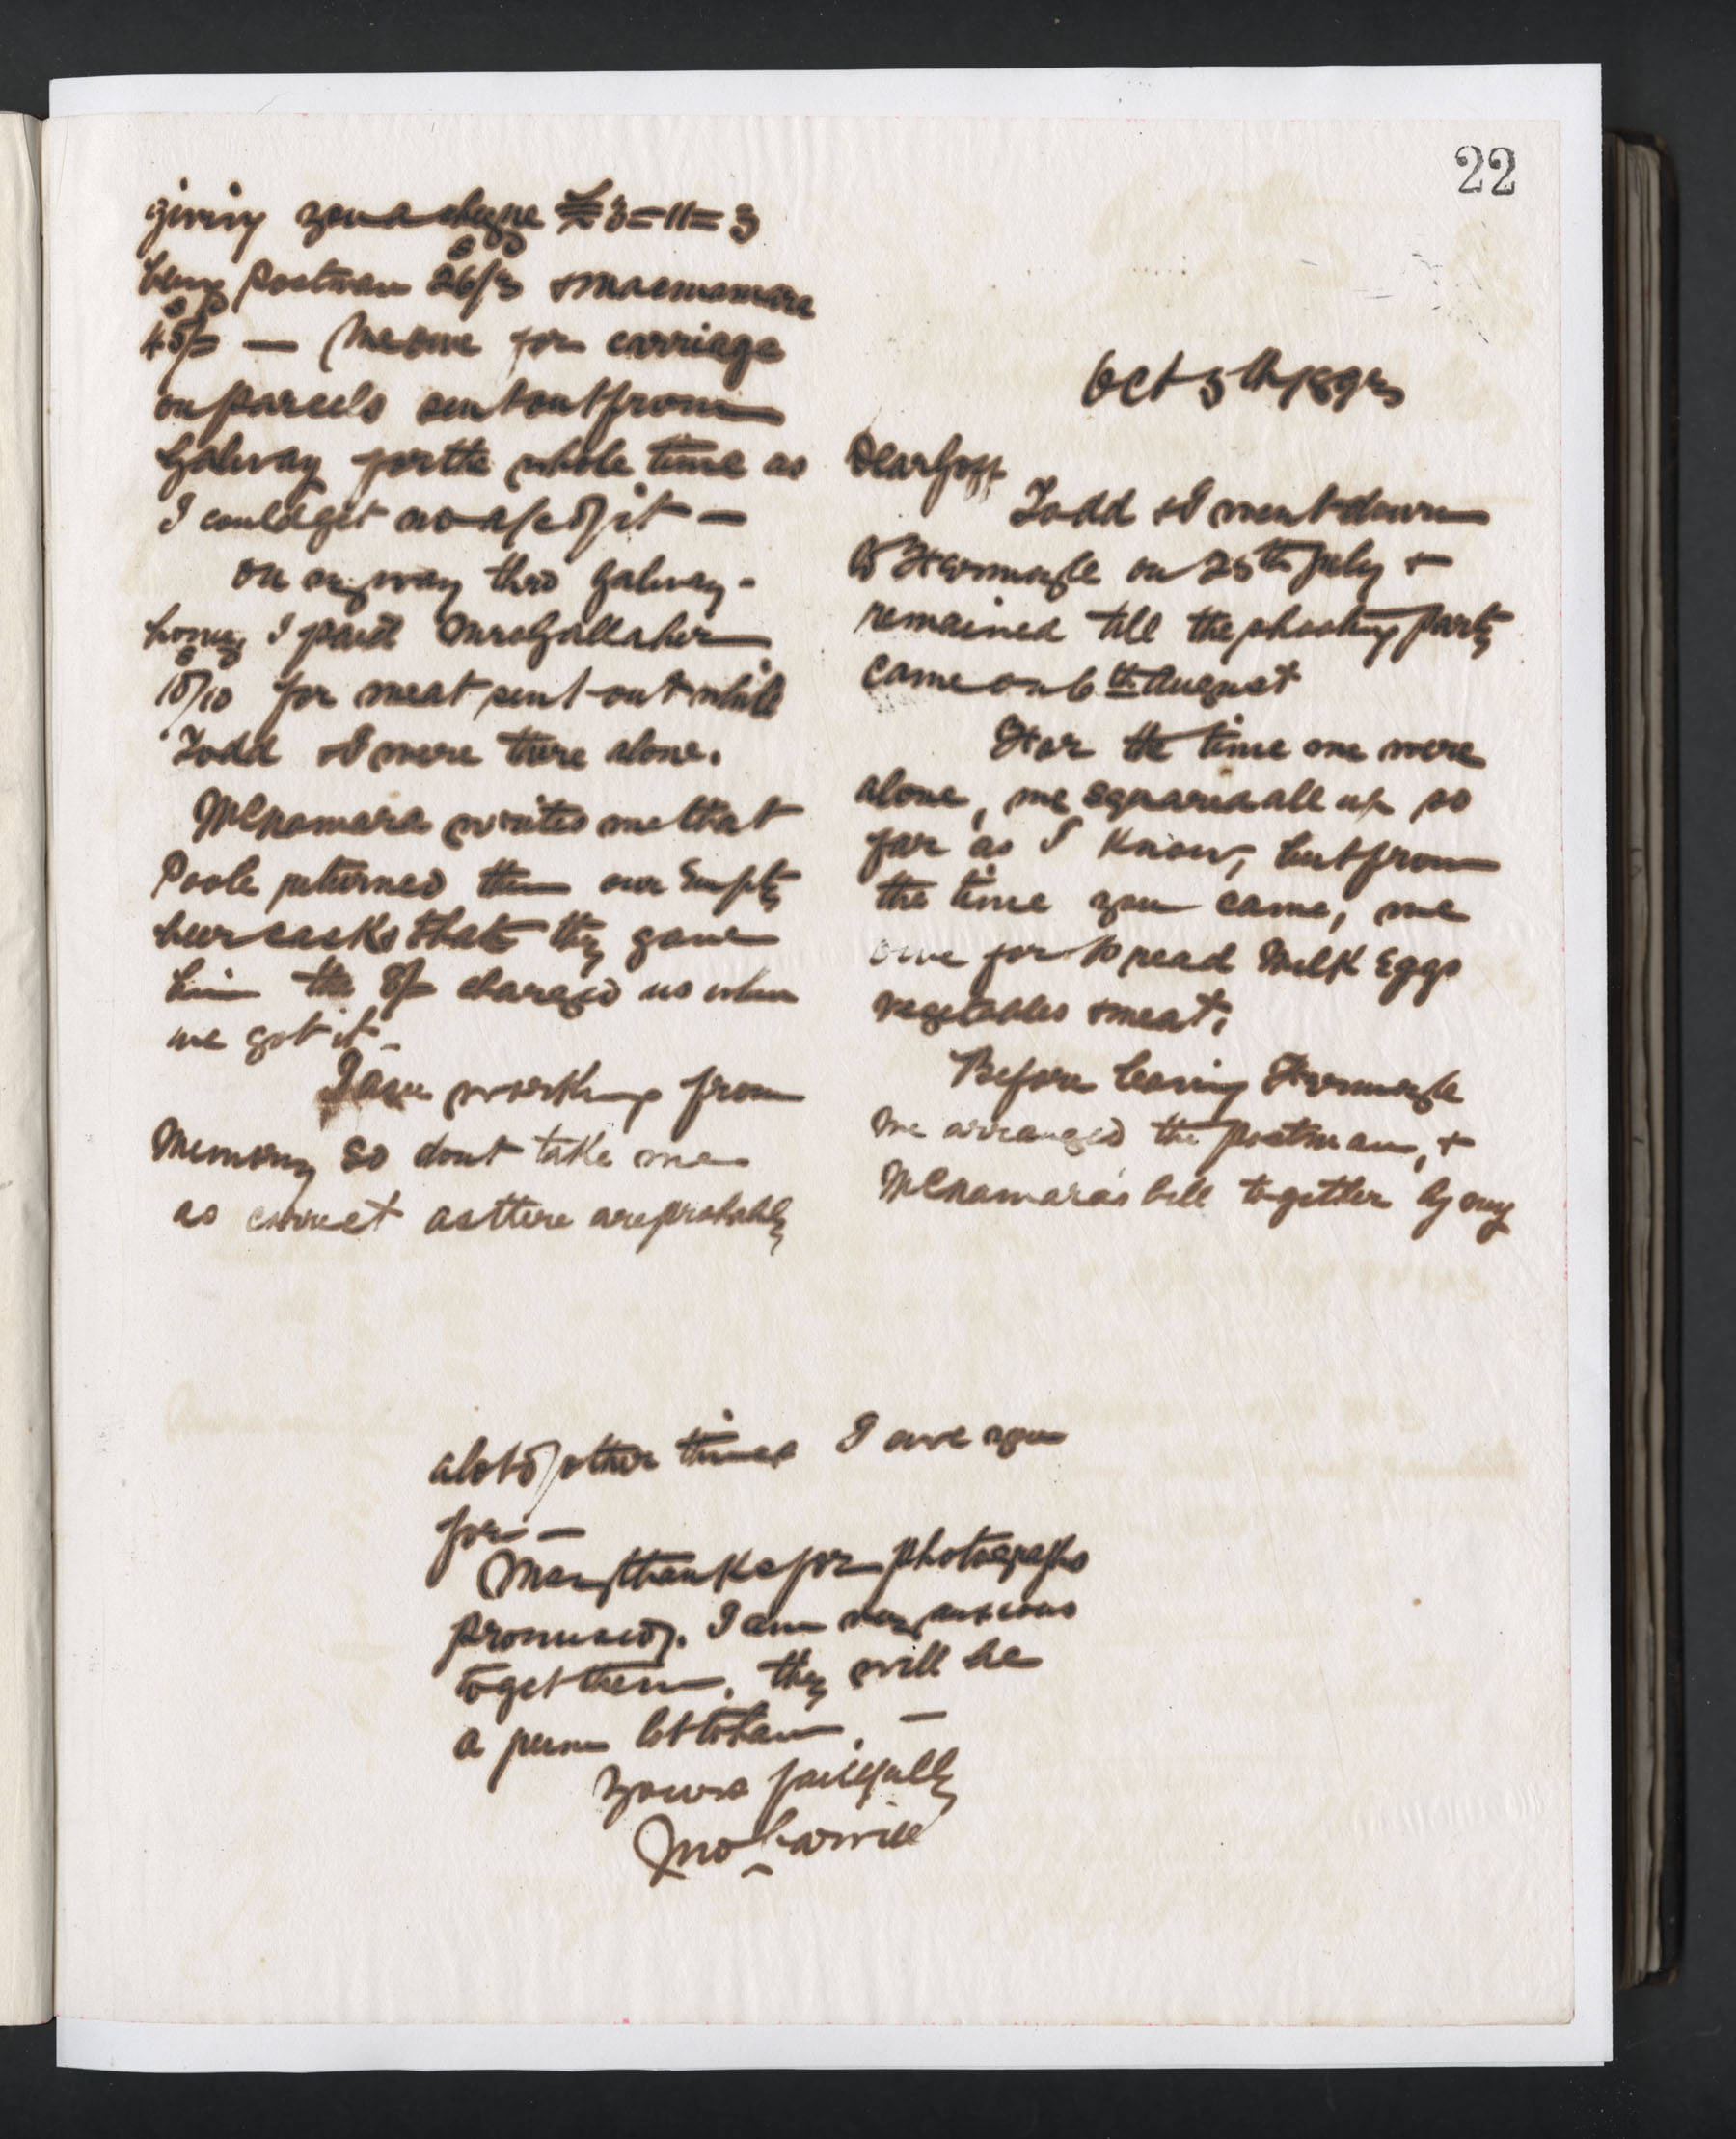 22
Oct 5th 1893
Dear Goff
Todd & I went down
to Fermoyle on 25th July &
remained till the shooting party
came on 6th August
For the time we were
alone, we squared all up so
far as I know, but from
the time you came, we
owe for bread Milk Eggs
vegetables & meat.
Before leaving Fermoyle
we arranged the postman, &
McNamara's bill together by my
giving you a cheque £3=11=3
being Postman 26/3 & Macnamara
45/= — We owe for carriage
on parcels sent out from
Galway for the whole time as
I could get no a/c of it —
On my way thro Galway -
home, I paid Mrs Gallaher
10/10 for meat sent out while
Todd & I were there alone.
McNamara writes me that
Poole returned them our Empty
beer casks that they gave
him the 8/= charged us when
we got it -
I am working from
Memory so dont take me
as correct as there are probably
a lot of other times I owe you
for —
Many thanks for photographs
promised. I am very anxious
to get them, they will be
a lot to have. —
Yours faithfully
Jno Carvill